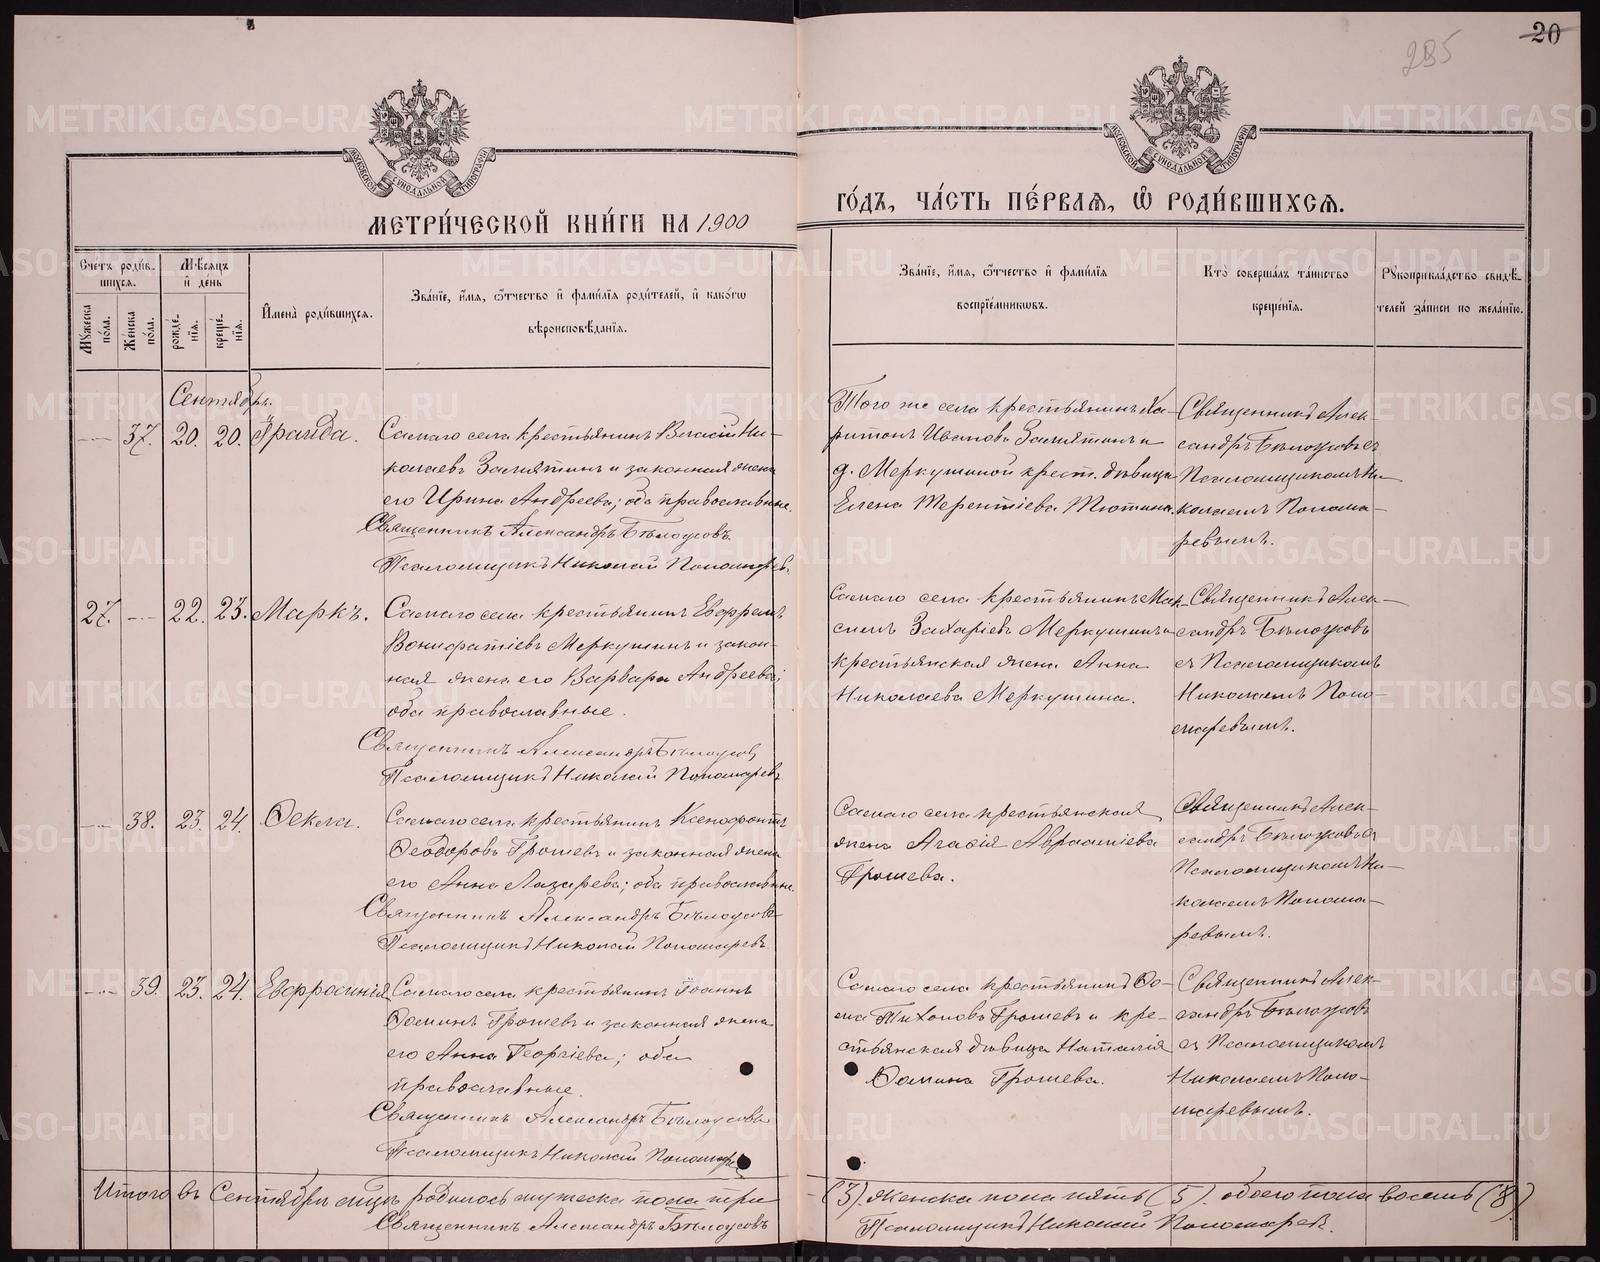 20
285
МОСКОВСКОЙ СѴНОДАЛЬНОЙ ТИПОГРАФІИ
МОСКОВСКОЙ СѴНОДАЛЬНОЙ ТИПОГРАФІИ
МЕТРИ́ЧЕСКОЙ КНИ́ГИ НА 1900
ГО́ДЪ, ЧА́СТЬ ПЕ́РВАѦ, Ѽ РОДИ́ВШИХСѦ.
Сче́тъ роди́в-
шихсѧ.
Мꙋ́жеска по́ла.
Же́нска по́ла.
Мѣ́сѧцъ
и҆ день
рожде́-нїѧ.
креще́-нїѧ.
И҆мена̀ роди́вшихсѧ.
Зва́нїе, и҆́мѧ, ѻ҆́тчество и҆ фами́лїѧ роди́телей, и҆ како́гѡ
вѣроисповѣ́данїѧ.
Зва́нїе, и҆́мѧ, ѻ҆́тчество и҆ фами́лїѧ
воспрїе́мниковъ.
Кто̀ соверша́лъ та́инство
креще́нїѧ.
Рꙋкоприкла́дство свидѣ́-
телей за́писи по жела́нїю.
Сентябрь.
37. 20. 20. Ираида.
Самаго села крестьянинъ Власій Ни-
колаевъ Замятинъ и законная жена
его Ирина Андреева; оба православные.
Священникъ Александръ Бѣлоусовъ.
Псаломщикъ Николай Пономаревъ.
Того же села крестьянинъ Ха-
ритонъ Ивановъ Замятинъ и
д. Меркушиной крест. дѣвица
Елена Терентіева Тютина.
Священникъ Алек-
сандръ Бѣлоусовъ съ
Псаломщикомъ Ни-
колаемъ Понома-
ревымъ.
27. 22. 23. Маркъ.
Самаго села крестьянинъ Ефремъ
Вонифатіевъ Меркушинъ и закон-
ная жена его Варвара Андреева;
оба православные.
Священникъ Александръ Бѣлоусовъ
Псаломщикъ Николай Пономаревъ
Самаго села крестьянинъ Мак-
симъ Захаріевъ Меркушинъ и
крестьянская жена Анна
Николаева Меркушина.
Священникъ Алек-
сандръ Бѣлоусовъ
съ Псаломщикомъ
Николаемъ Поно-
маревымъ.
38. 23. 24. Ѳекла.
Самаго села крестьянинъ Ксенофонтъ
Ѳеодоровъ Грошевъ и законная жена
его Анна Лазарева; оба православные.
Священникъ Александръ Бѣлоусовъ
Псаломщикъ Николай Пономаревъ.
Самаго села крестьянская
жена Агафія Авраамiева
Грошева.
Священникъ Алек-
сандръ Бѣлоусовъ съ
Псаломщикомъ Ни-
колаемъ Понома-
ревымъ.
39. 23. 24. Евфросинія
Самаго села крестьянинъ Іоаннъ
Ѳоминъ Грошевъ и законная жена
его Анна Георгіева; оба
православные.
Священникъ Александръ Бѣлоусовъ
Псаломщикъ Николай Пономаревъ
Самаго села крестьянинъ Ѳо-
ма Тихоновъ Грошевъ и кре-
стьянская дѣвица Наталія
Ѳомина Грошева.
Священникъ Алек-
сандръ Бѣлоусовъ
съ Псаломщикомъ
Николаемъ Поно-
маревымъ.
Итого въ Сентябрѣ мѣсяцѣ родилось мужеска пола три
(3). женска пола пять (5). обоего пола восемь (8)
Священникъ Александръ Бѣлоусовъ
Псаломщикъ Николай Пономаревъ.
METRIKI.GASO-URAL.RU